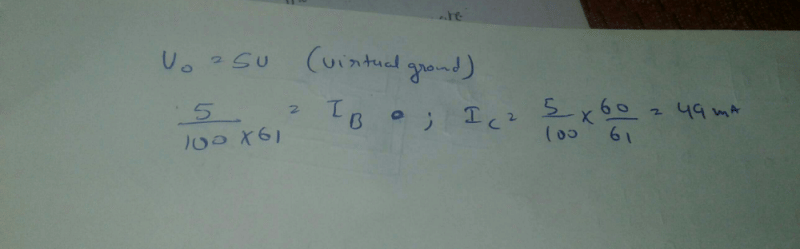 V₀ = 5V (virtual ground)
5/(100 × 61) = I_B ; I_C = 5/100 × 60/61 = 49 mA